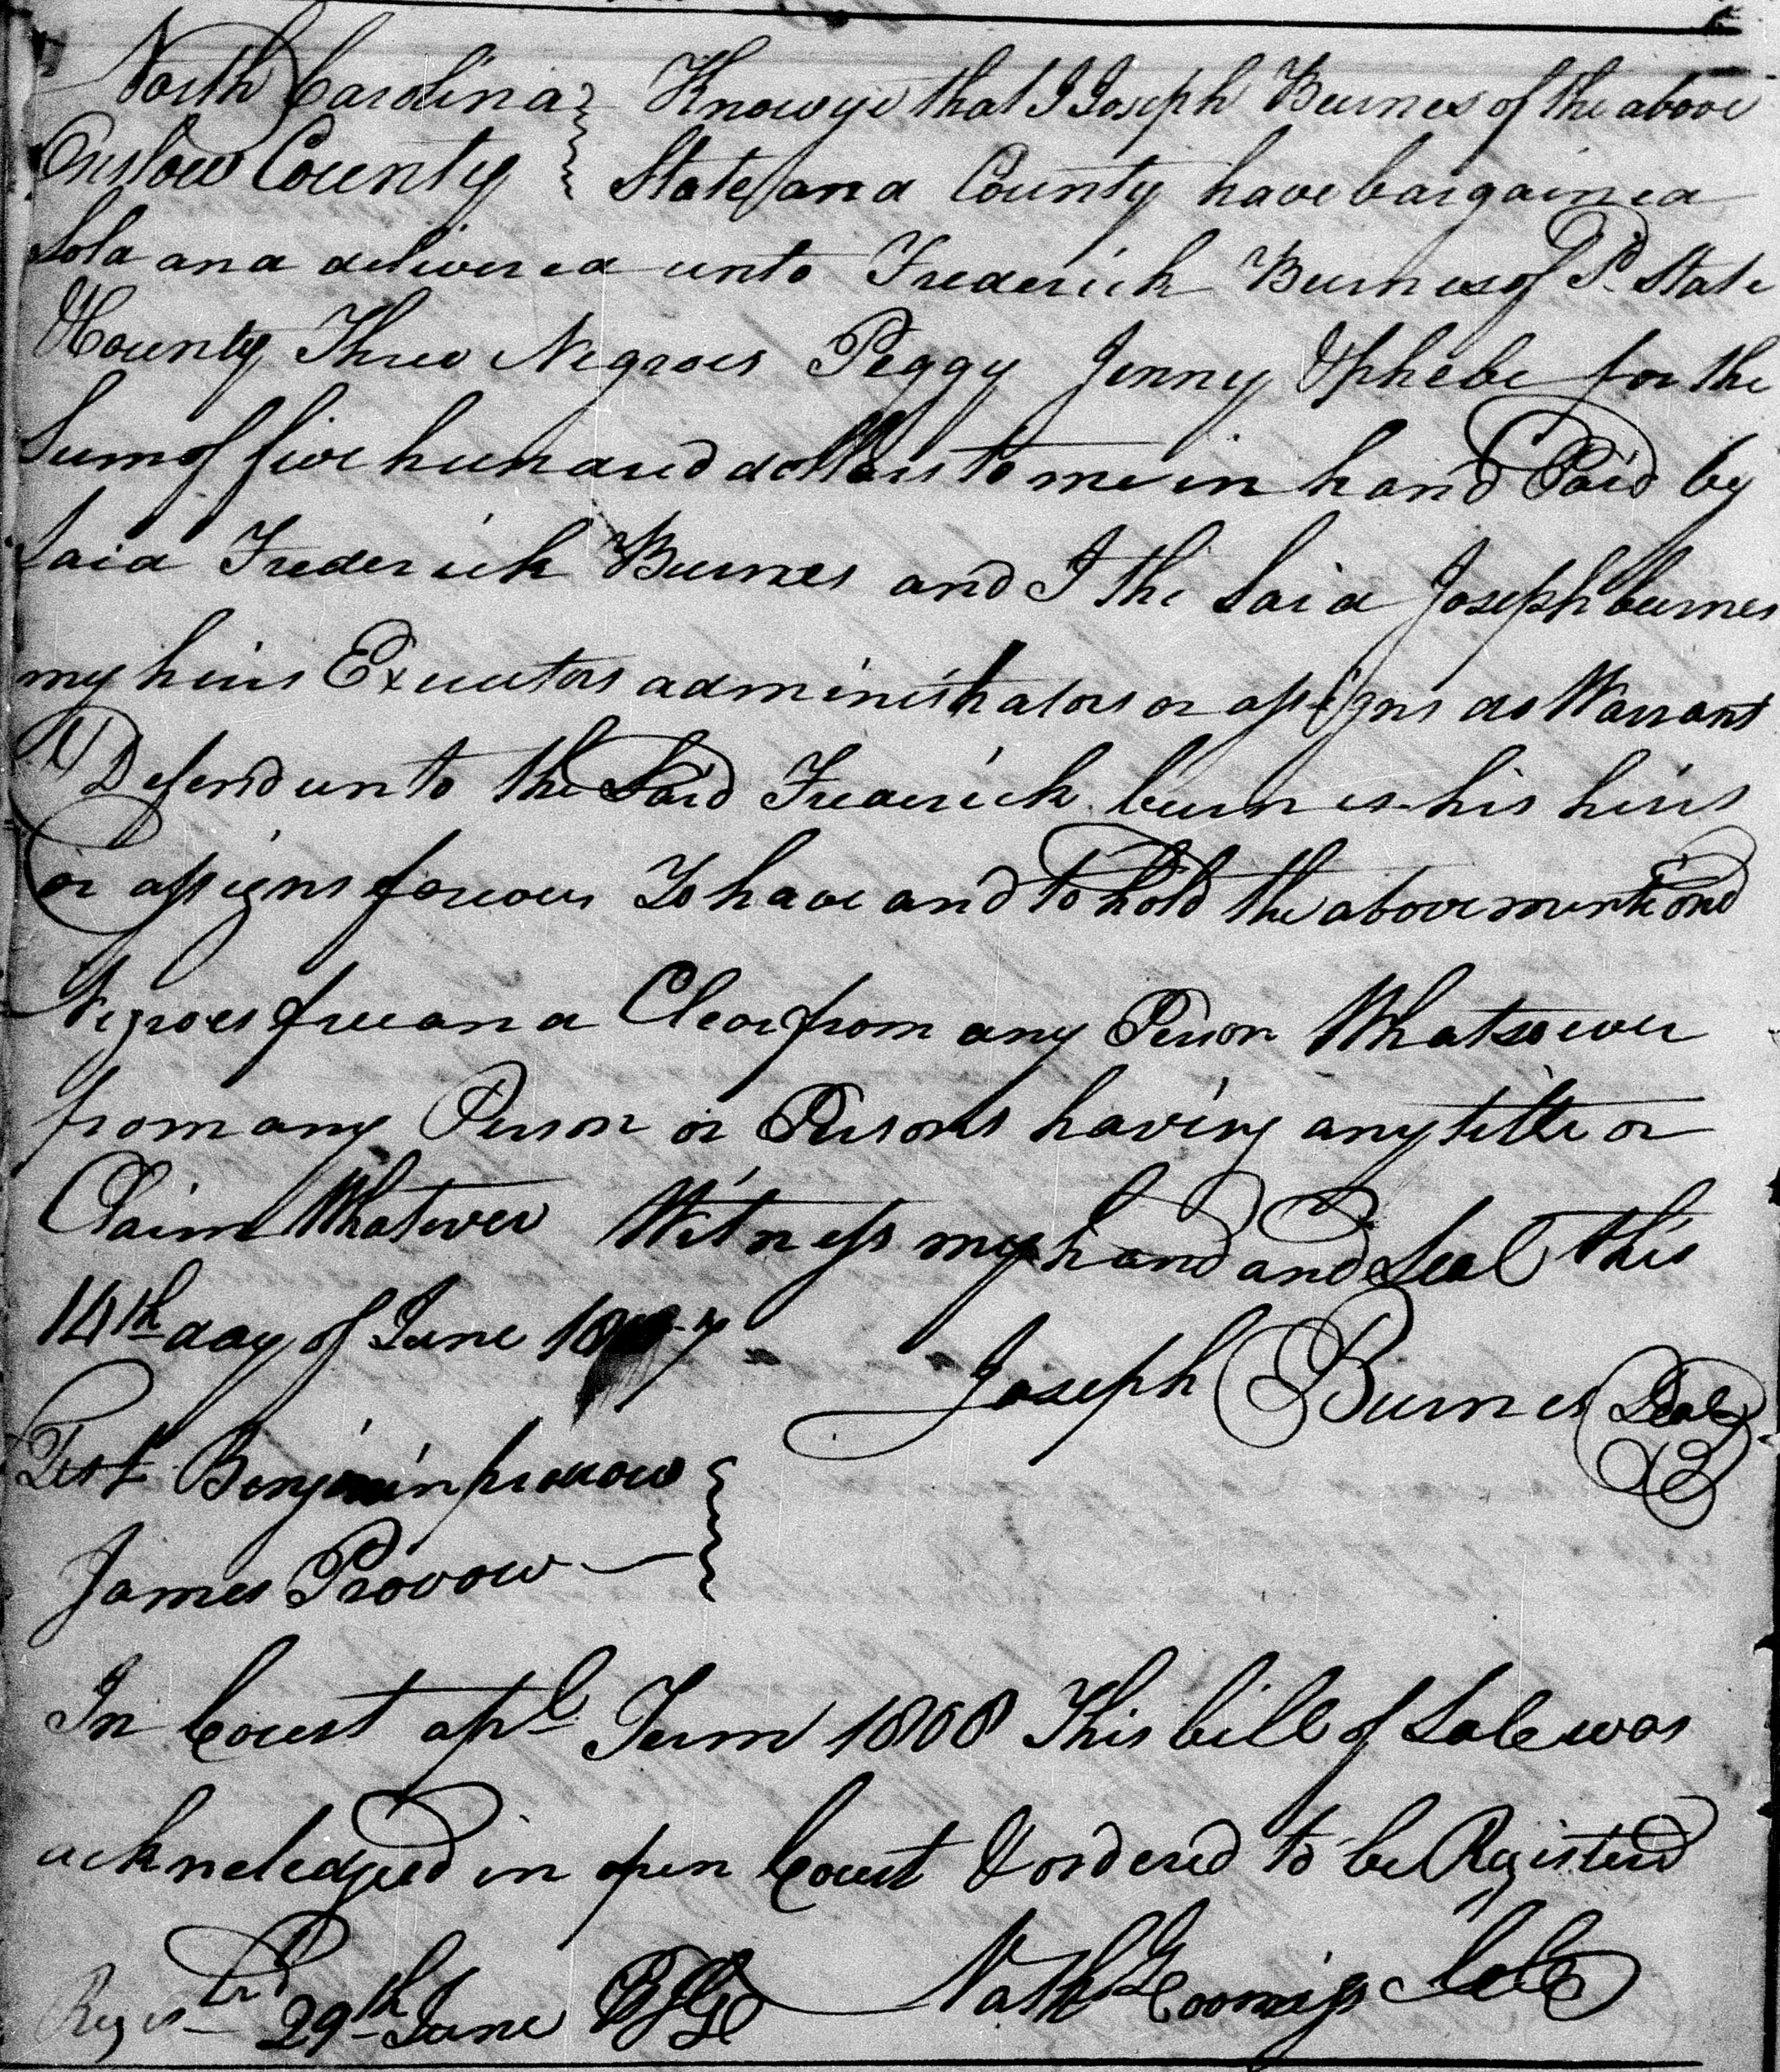 North Carolina } Know ye that I Joseph Burnes of the above
Onslow County } State and County have bargained
Sold and delivered unto Frederick Burnes of Sd. State
& County Three Negroes Peggy Jenny & Phebe for the
Sum of five hundred dollars to me in hand Paid by
Said Frederick Burnes and I the Said Joseph burnes
my heirs Executors administrators or assigns do Warrant
& Defend unto the Said Frederick burnes his heirs
or assigns forever To have and to hold the above mentiond
Negroes free and Clear from any Person Whatsoever
from any Person or Persons having any title or
Claim Whatever Witness my hand and Seal this
14th day of June 1807
Joseph Burnes Seal
Test Benjamin
James Provow
In Court apl Term 1808 This bill of Sale was
ackneledged in open Court & ordered to be Registerd
Regist.rd 29th June Nath Loomiss